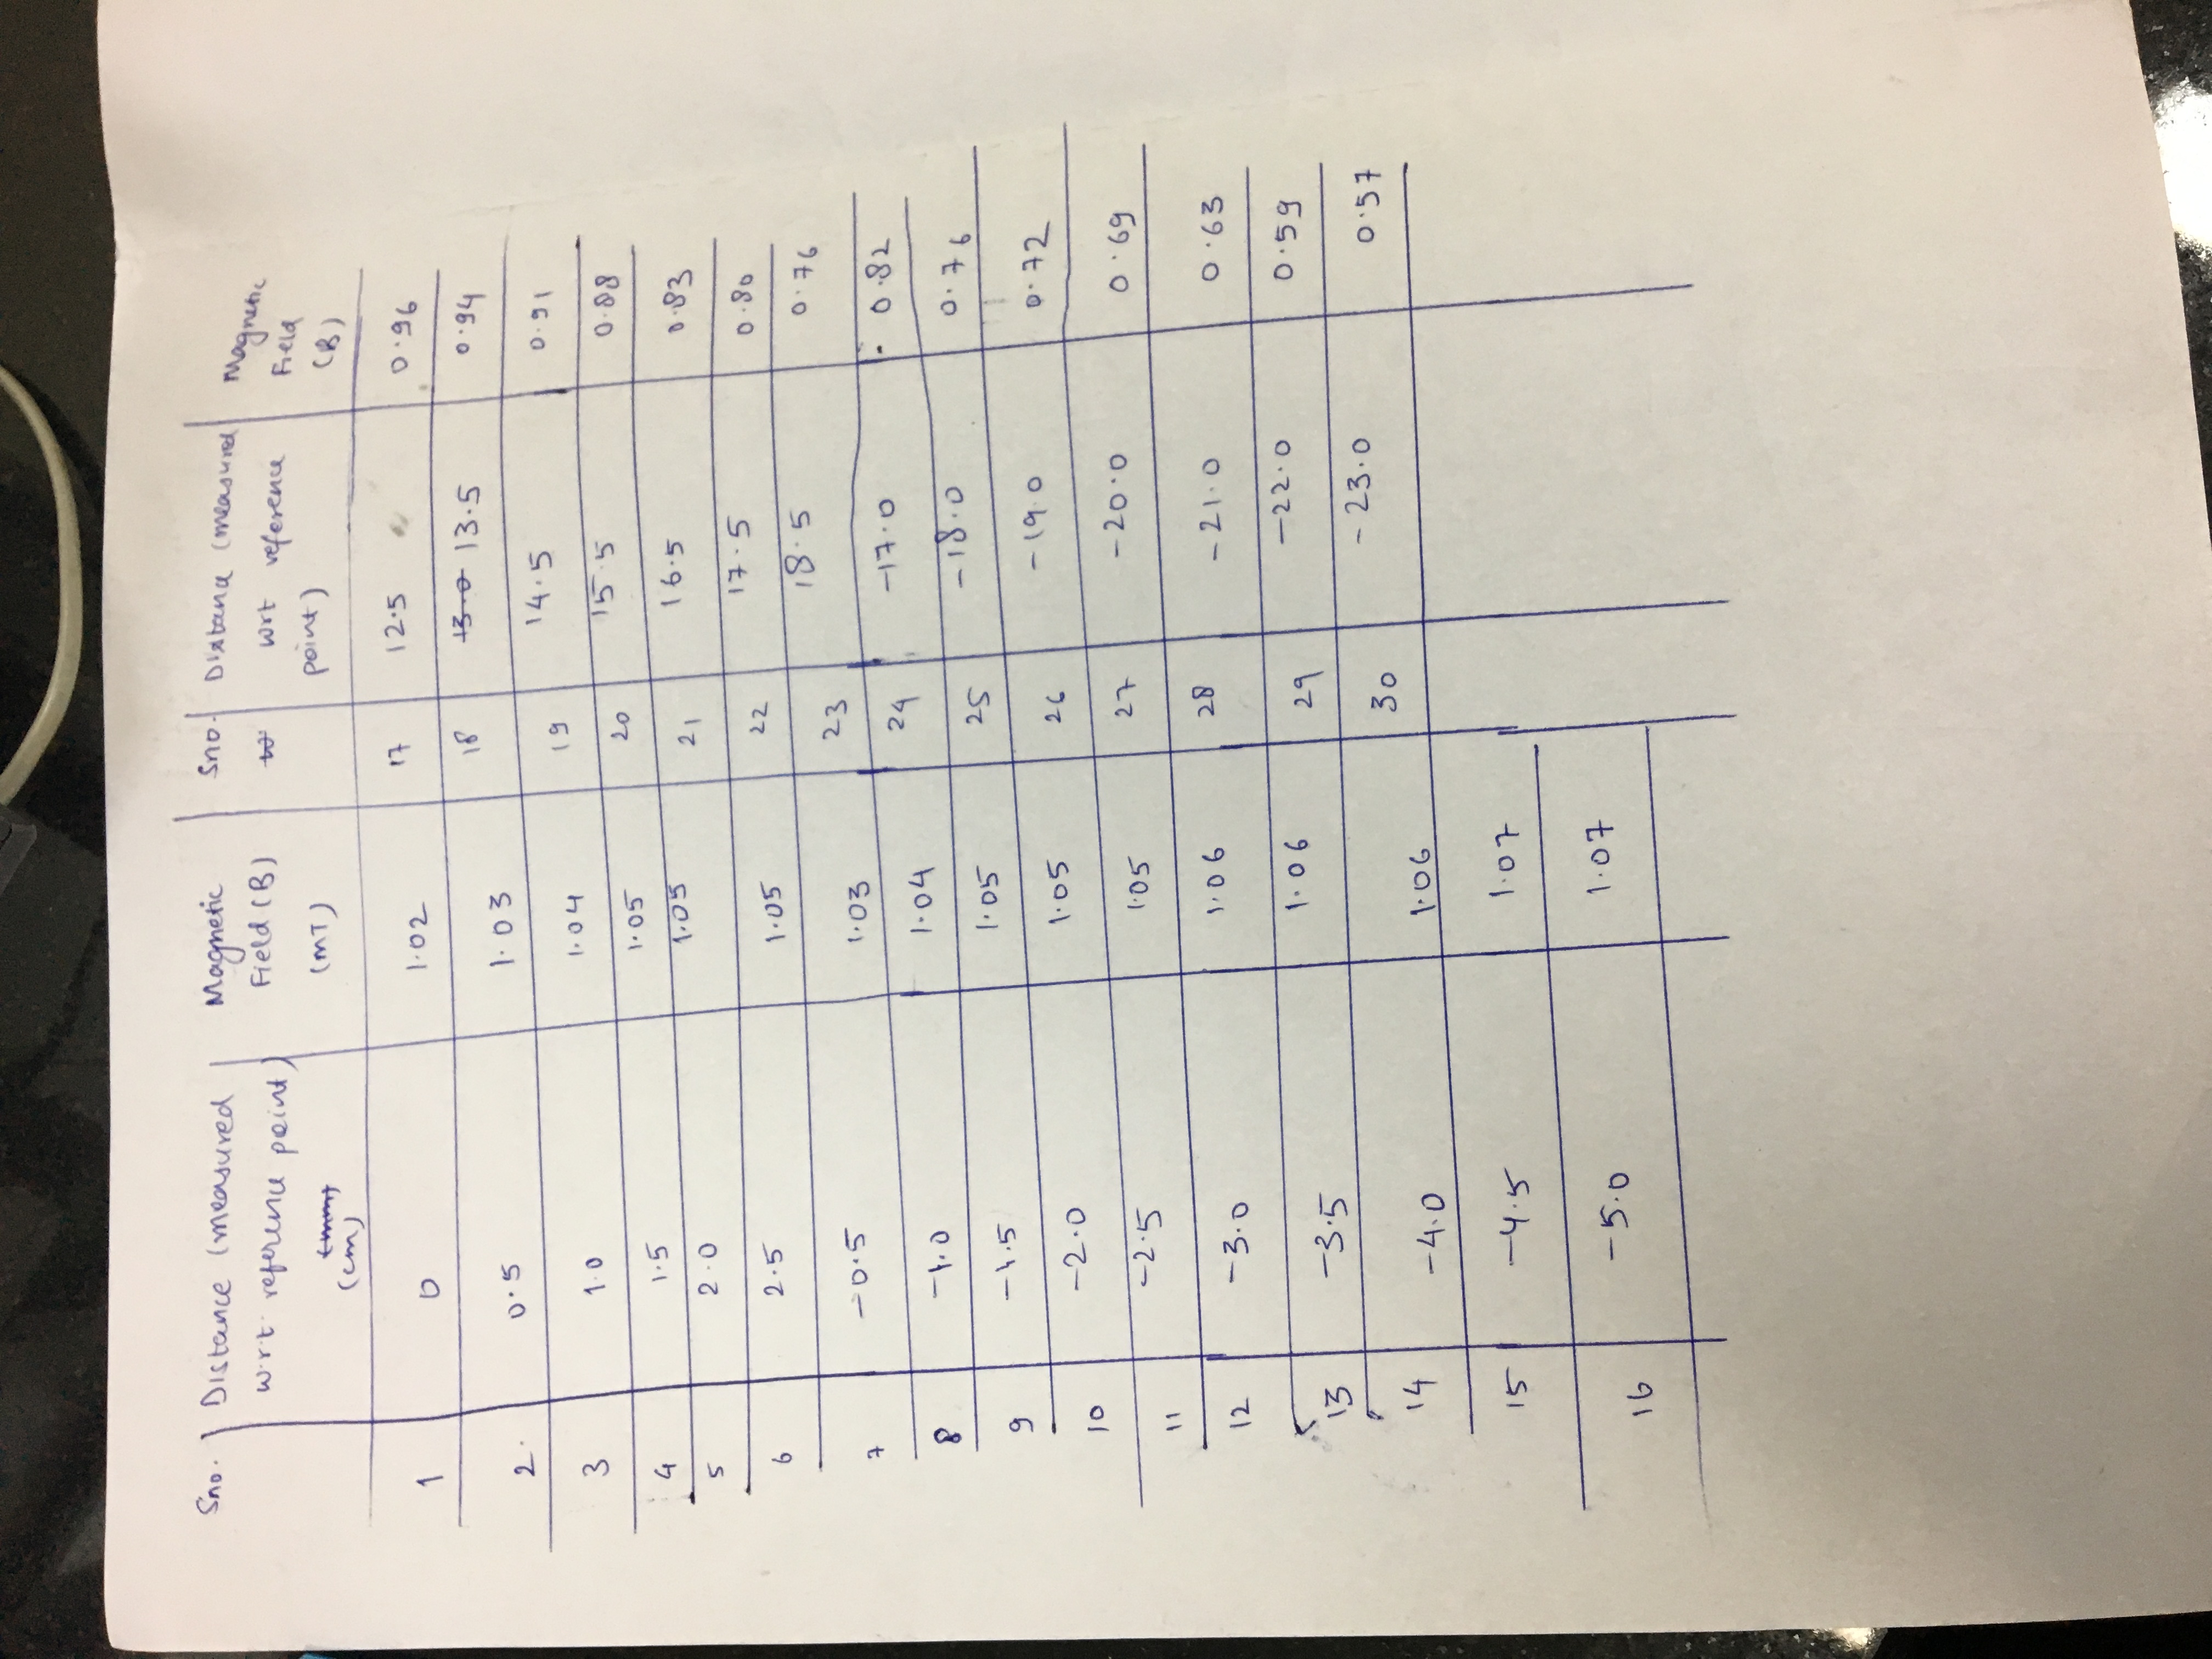 Sno. Distance (measured w.r.t. reference point) (mm) (cm) Magnetic Field (B) (mT) Sno. Distance (measured wrt reference point) Magnetic Field (B)
1 0 1.02 17 12.5 0.96
2. 0.5 1.03 18 13.0 13.5 0.94
3 1.0 1.04 19 14.5 0.91
4 1.5 1.05 20 15.5 0.88
5 2.0 1.05 21 16.5 0.83
6 2.5 1.05 22 17.5 0.80
7 -0.5 1.03 23 18.5 0.76
8 -1.0 1.04 24 -17.0 0.82
9 -1.5 1.05 25 -18.0 0.76
10 -2.0 1.05 26 -19.0 0.72
11 -2.5 1.05 27 -20.0 0.69
12 -3.0 1.06 28 -21.0 0.63
13 -3.5 1.06 29 -22.0 0.59
14 -4.0 1.06 30 -23.0 0.57
15 -4.5 1.07
16 -5.0 1.07